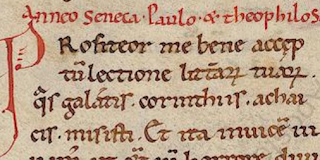 Anneo Seneca · Paulo · & theophilos
Profiteor me bene accep
tū lectione litt̄arꝝ tuarꝝ ·
q̄s galatis · corinthiis · achai
cis · misisti · Et ita inuicē ui